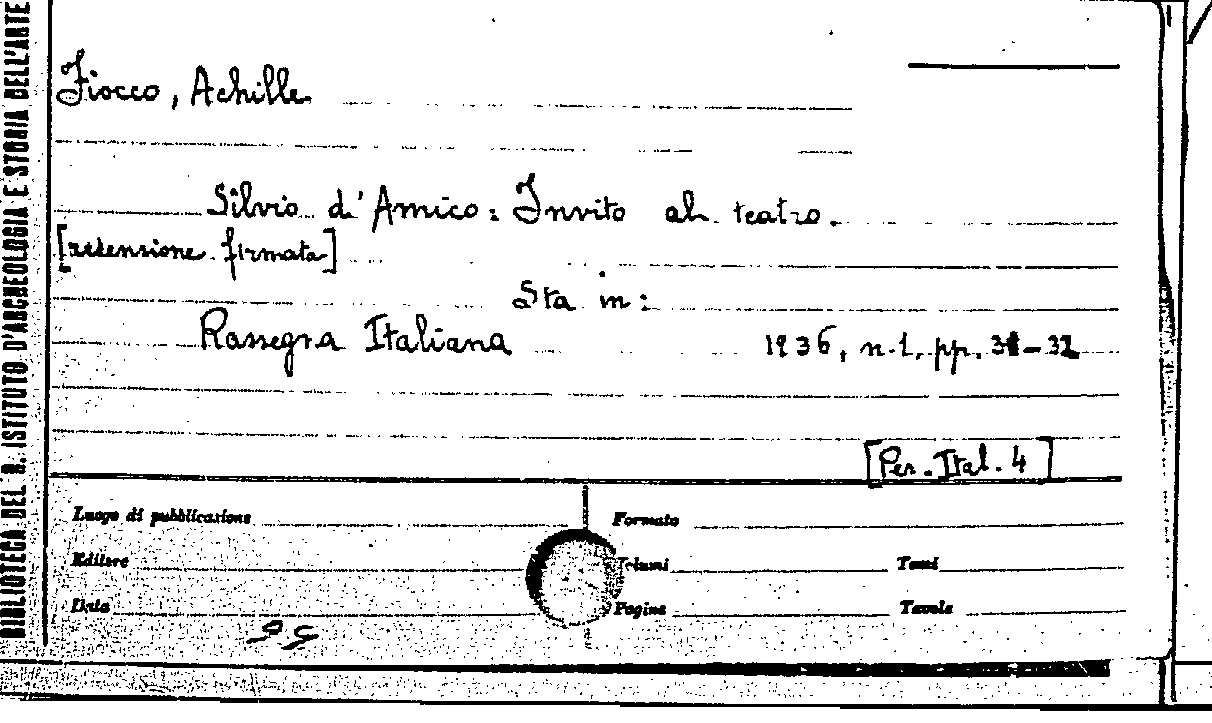 BIBLIOTECA DEL R. ISTITUTO D'ARCHEOLOGIA E STORIA DELL'ARTE
Fiocco, Achille
Silvio d'Amico: Invito al teatro.
[recensione firmata]
Sta in:
Rassegna Italiana 1936, n. 1, pp. 31-32
[Per. Ital. 4]
Luogo di pubblicazione Formato
Editore Volumi Tomi
Data Pagine Tavole